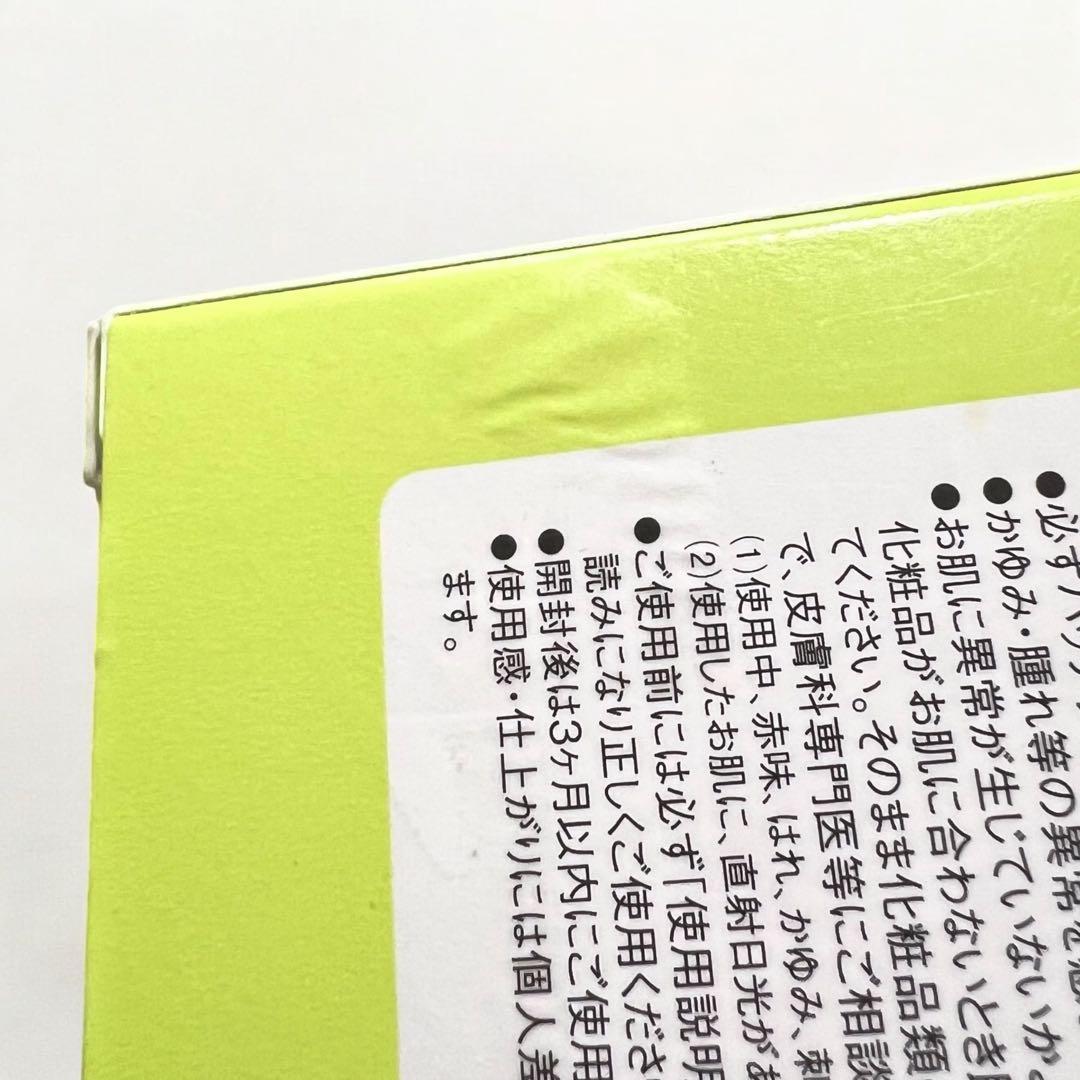 ●必ずパッチ
●かゆみ・腫れ等の異常を
●お肌に異常が生じていないか
化粧品がお肌に合わないとき
てください。そのまま化粧品類
で、皮膚科専門医等にご相談
(1)使用中、赤味、はれ、かゆみ、刺
(2)使用したお肌に、直射日光があ
●ご使用前には必ず「使用説明
読みになり正しくご使用くださ
●開封後は3ヶ月以内にご使用
●使用感・仕上がりには個人差
ます。